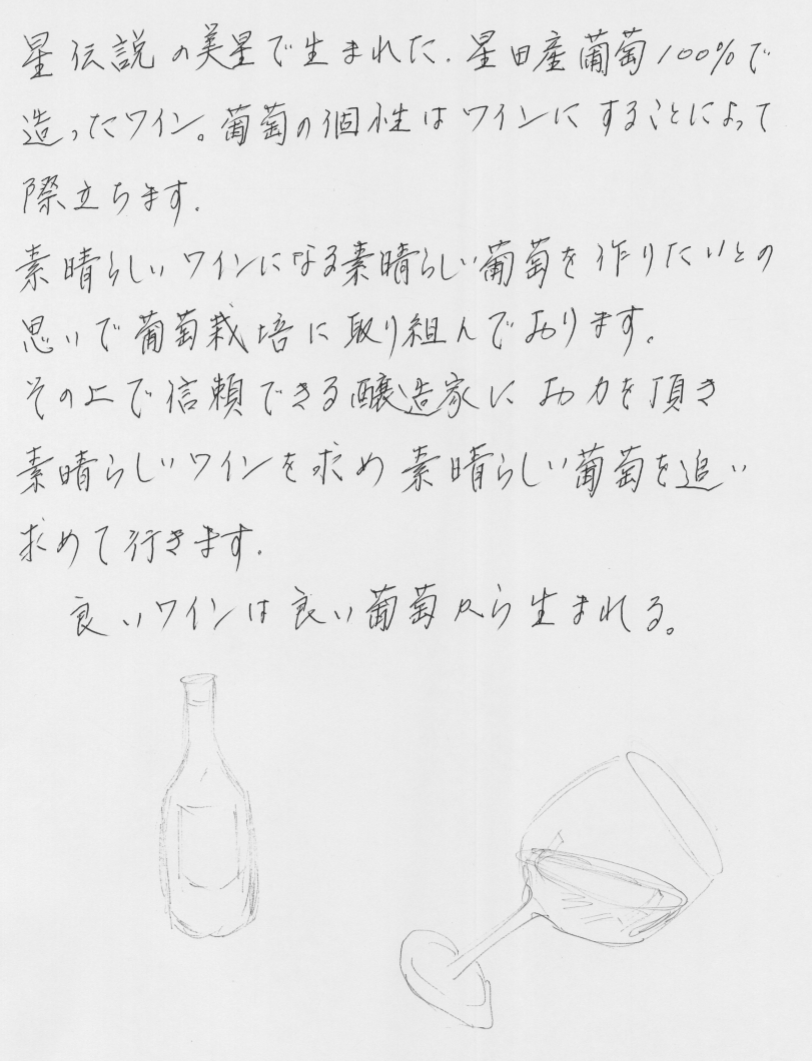 星伝説の美星で生まれた.星田産葡萄100%で
造ったワイン。葡萄の個性はワインにすることによって
際立ちます.
素晴らしいワインになる素晴らしい葡萄を作りたいとの
思いで葡萄栽培に取り組んでおります。
その上で信頼できる醸造家にお力を頂き
素晴らしいワインを求め素晴らしい葡萄を追い
求めて行きます.
良いワインは良い葡萄から生まれる。